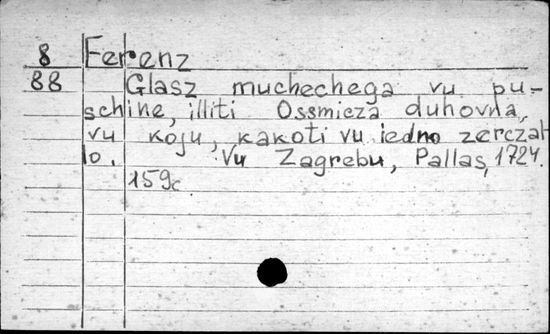 8 Ferenz
88 Glasz muchechega vu pu-
schine, illiti Ossmicza duhovna,
vu koju, kakoti vu iedno zerczat
lo. Vu Zagrebu, Pallas, 1724.
159c